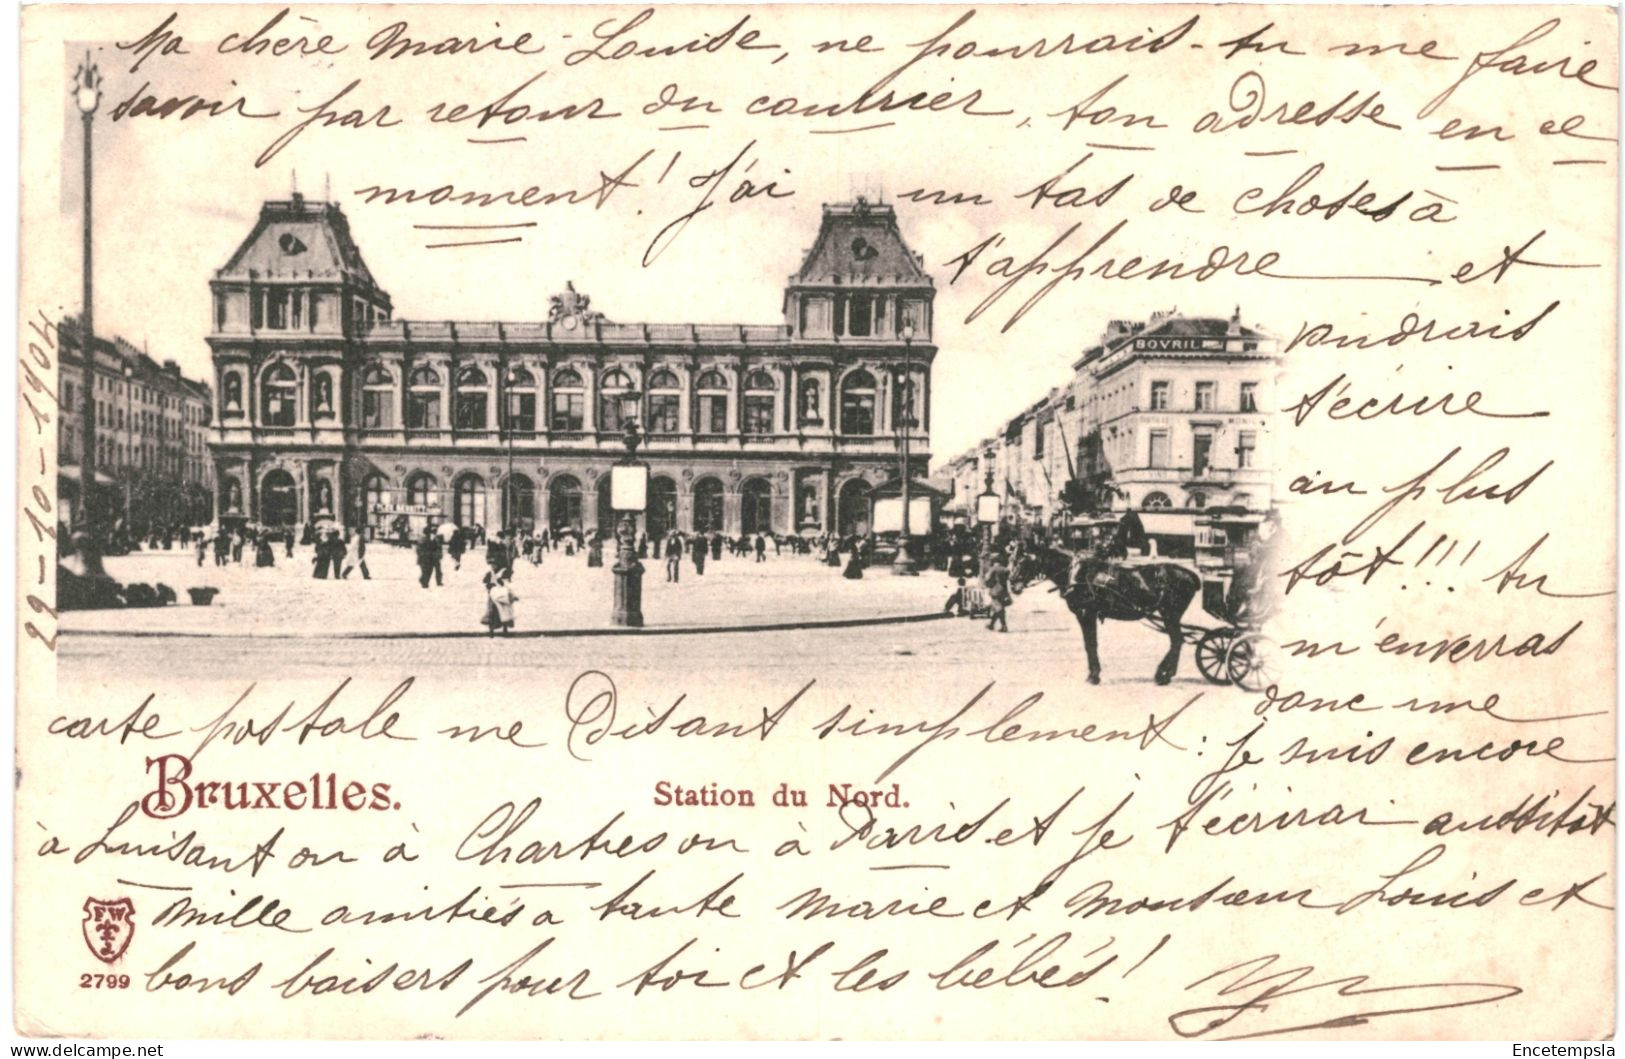 Ma chère Marie-Louise, ne pourrais-tu me faire
savoir par retour du courrier, ton adresse en ce
moment! J'ai un tas de choses à
t'apprendre et
voudrais
t'écrire
au plus
tôt!!! tu
m'enverras
donc une
carte postale me disant simplement: je suis encore
à Luisant ou à Chartres ou à Paris et je t'écrirai aussitôt
Mille amitiés à tante Marie et Monsieur Louis et
bons baisers pour toi et les bébés!
29-10-1904
BOVRIL
Bruxelles.
Station du Nord.
FW
2799
Encetempsla